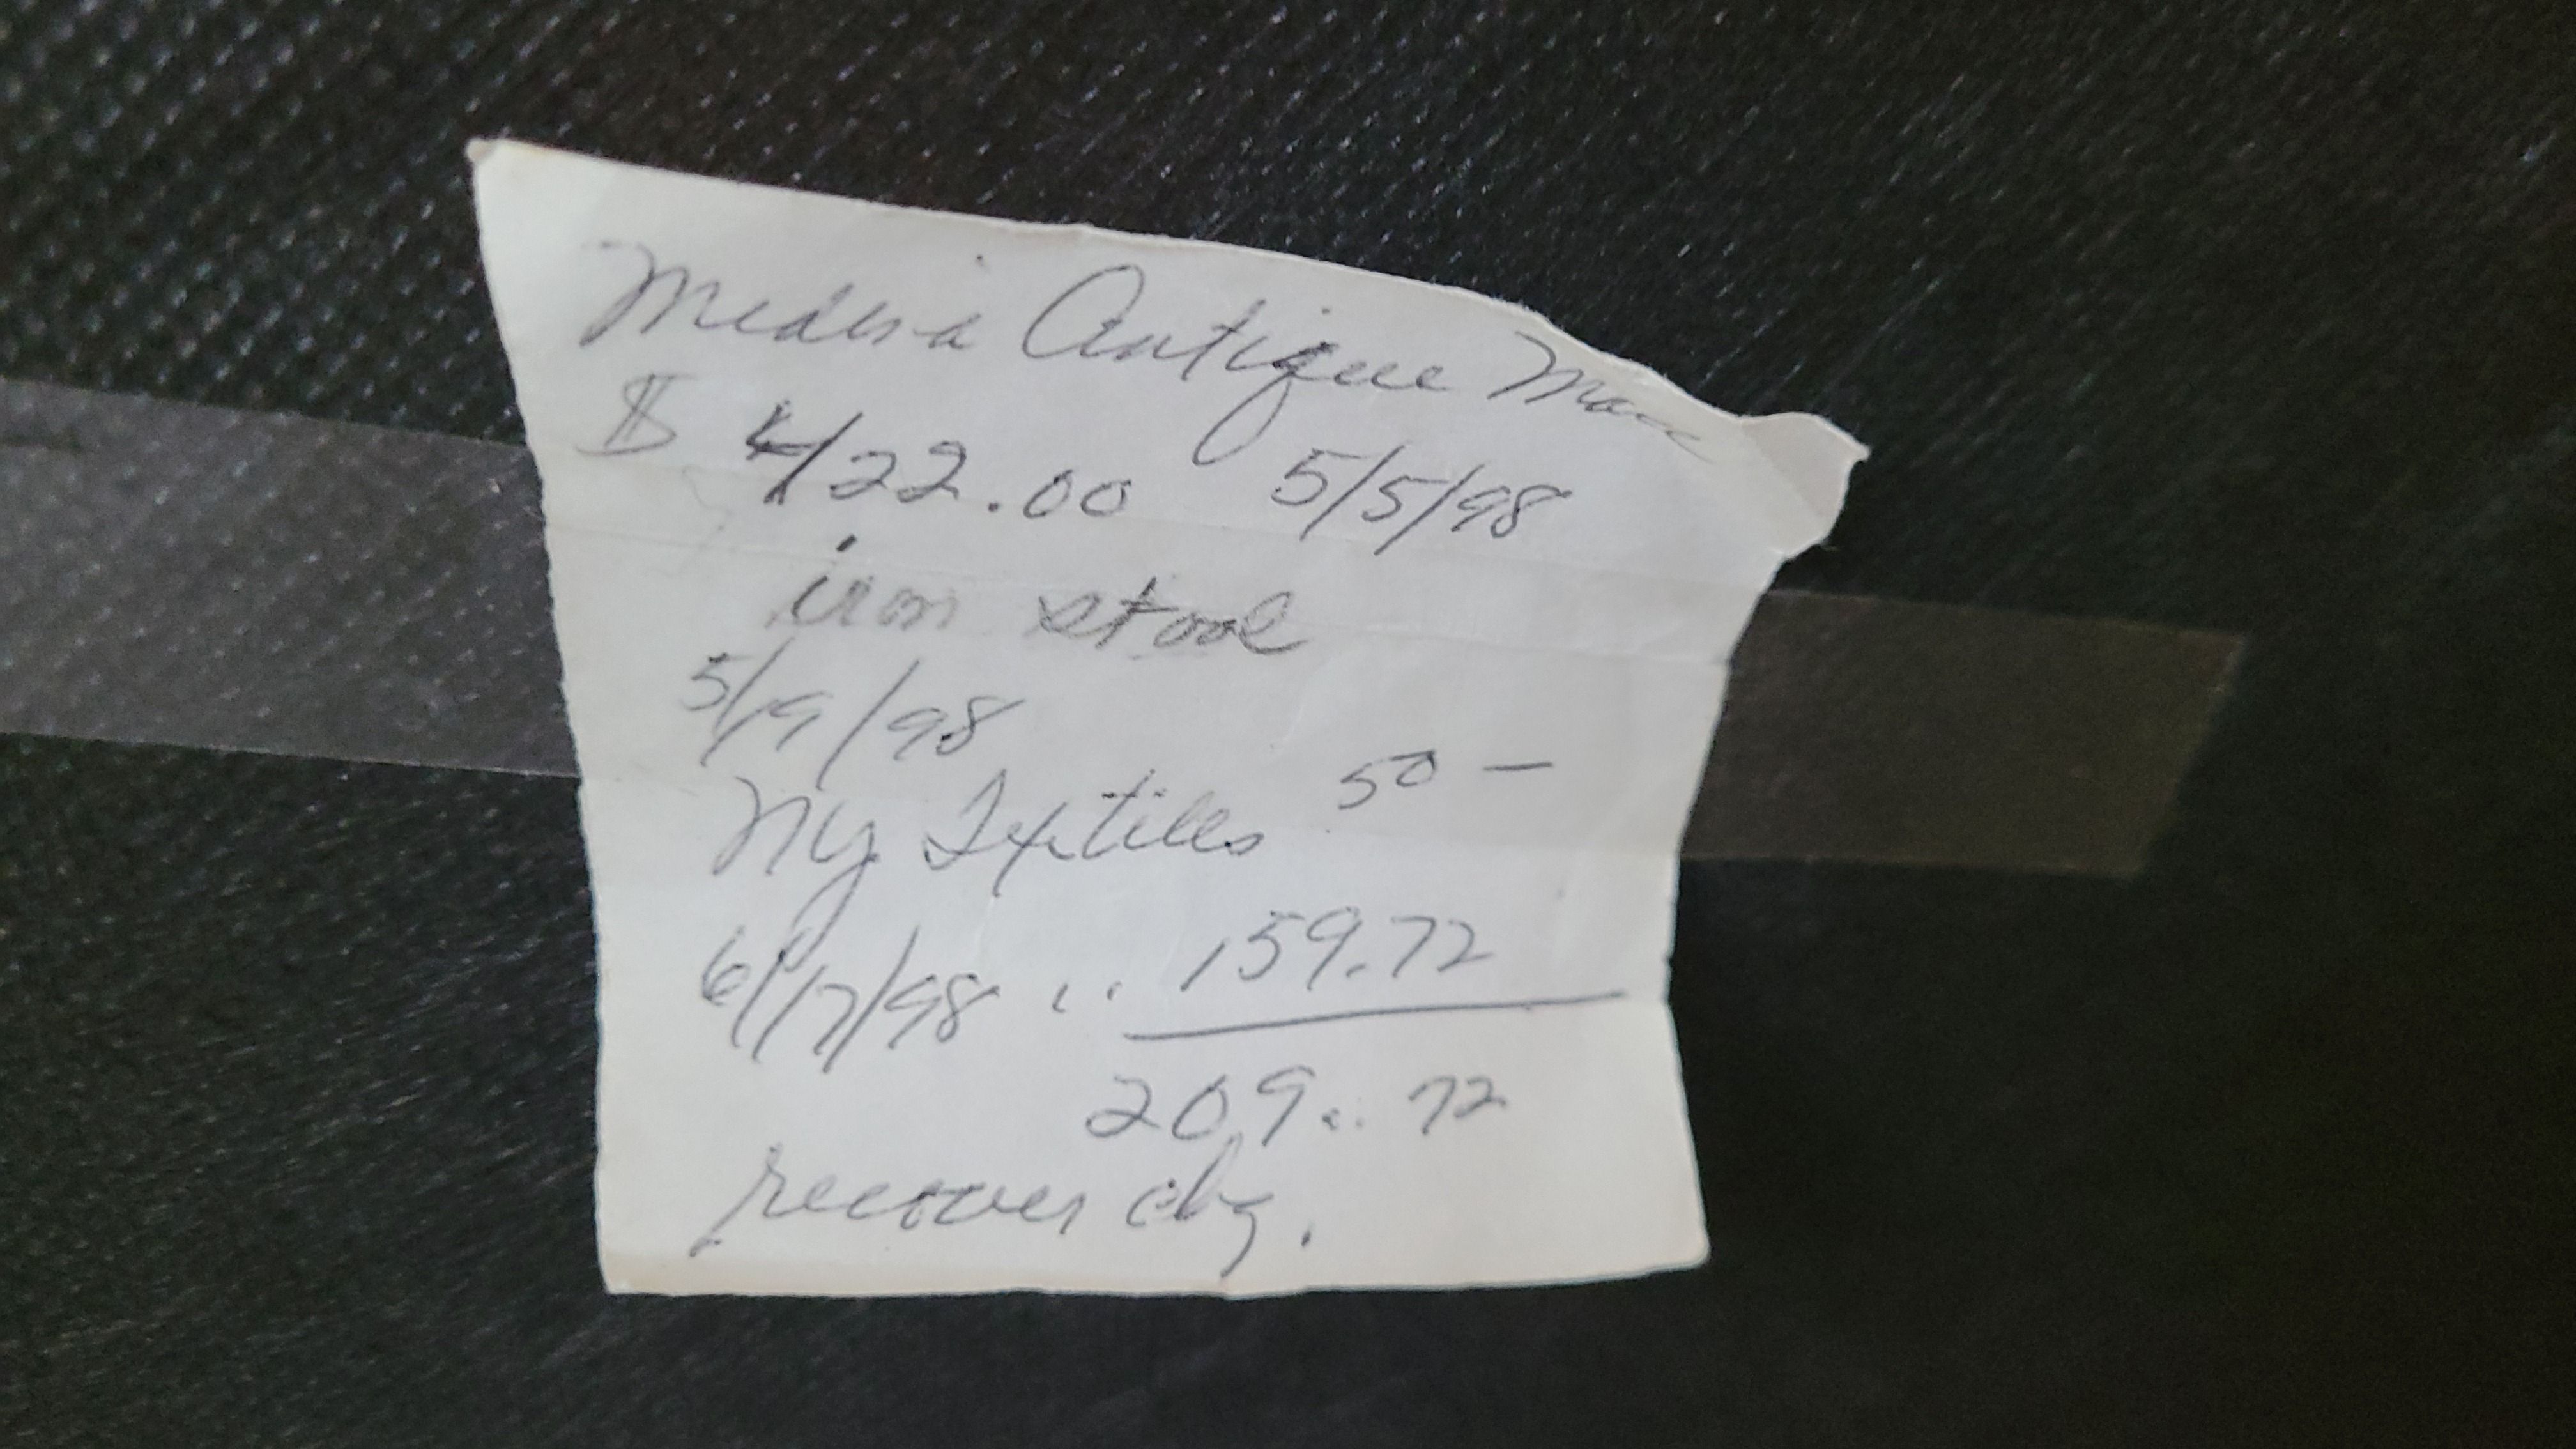 Medina Antique Mall
$ 422.00 5/5/98
iron stool
5/19/98
NY Textiles 50 —
6/17/98 .. 159.72
209.. 72
recover chg.